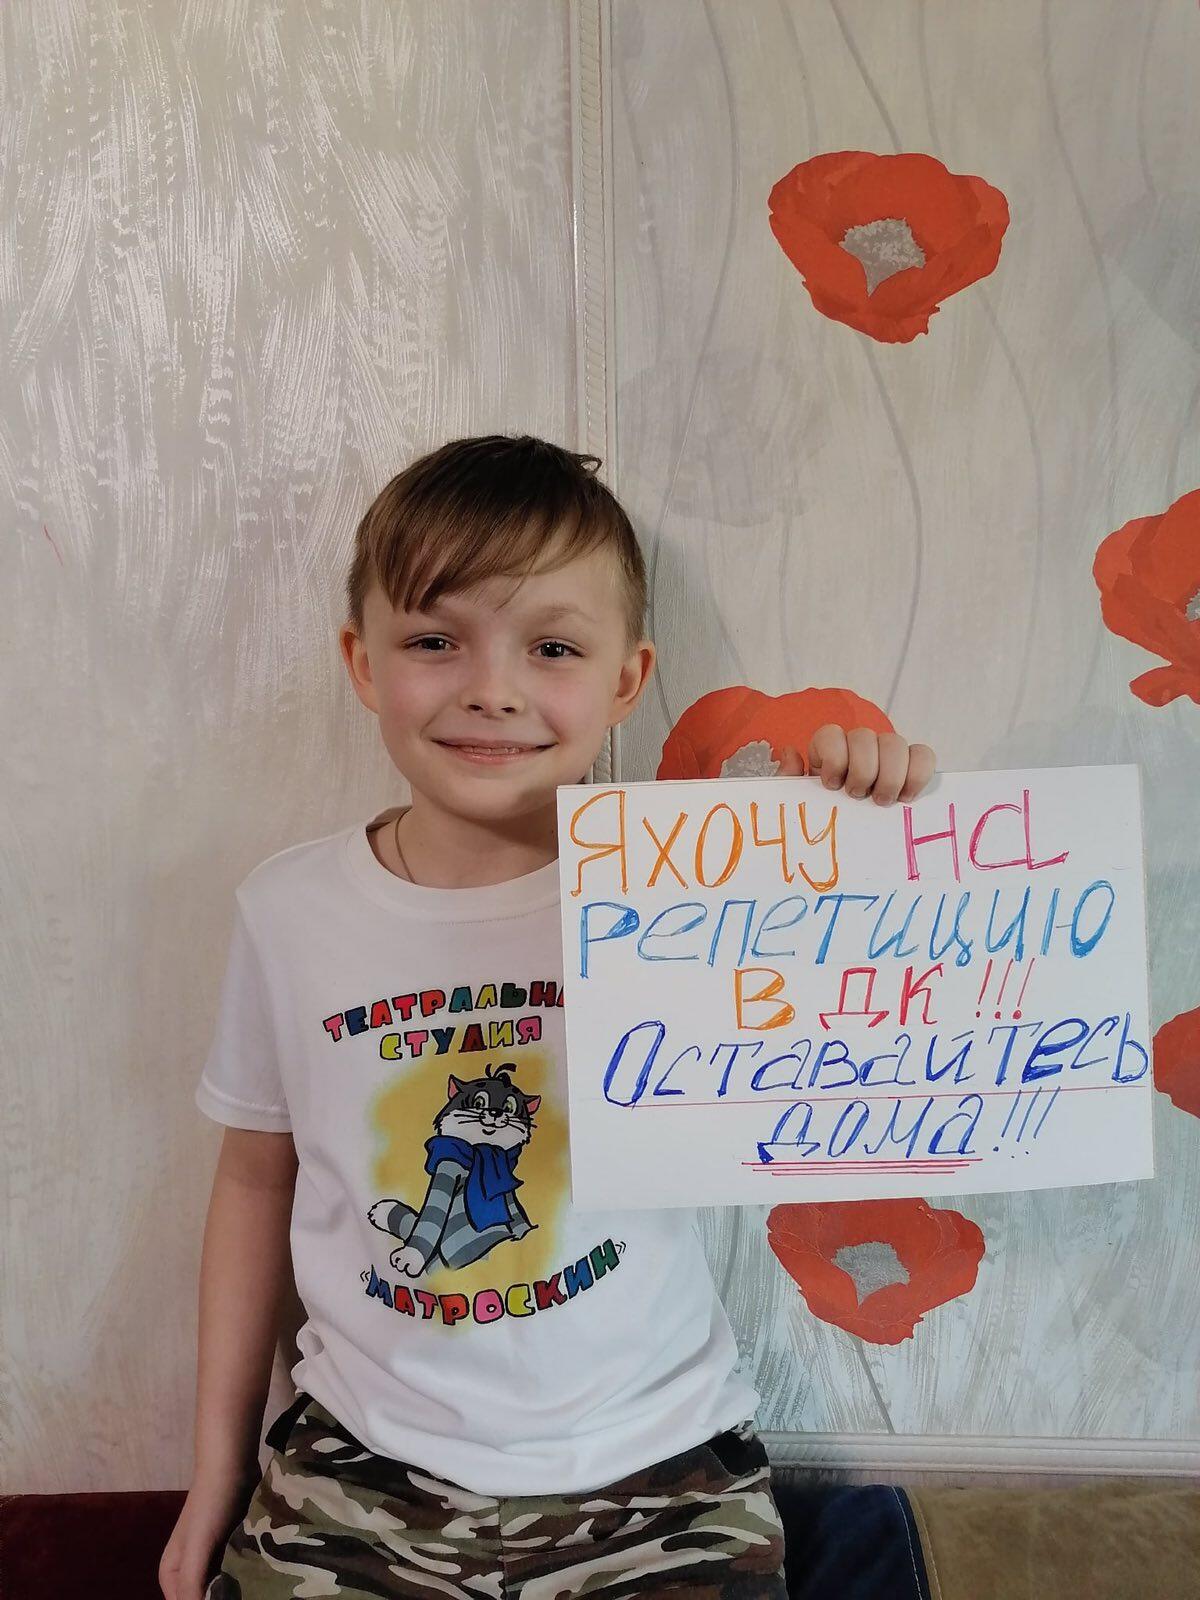 ТЕАТРАЛЬНА
СТУДИЯ
«МАТРОСКИН»
Я хочу на
репетицию
в ДК!!!
Оставайтесь
дома!!!